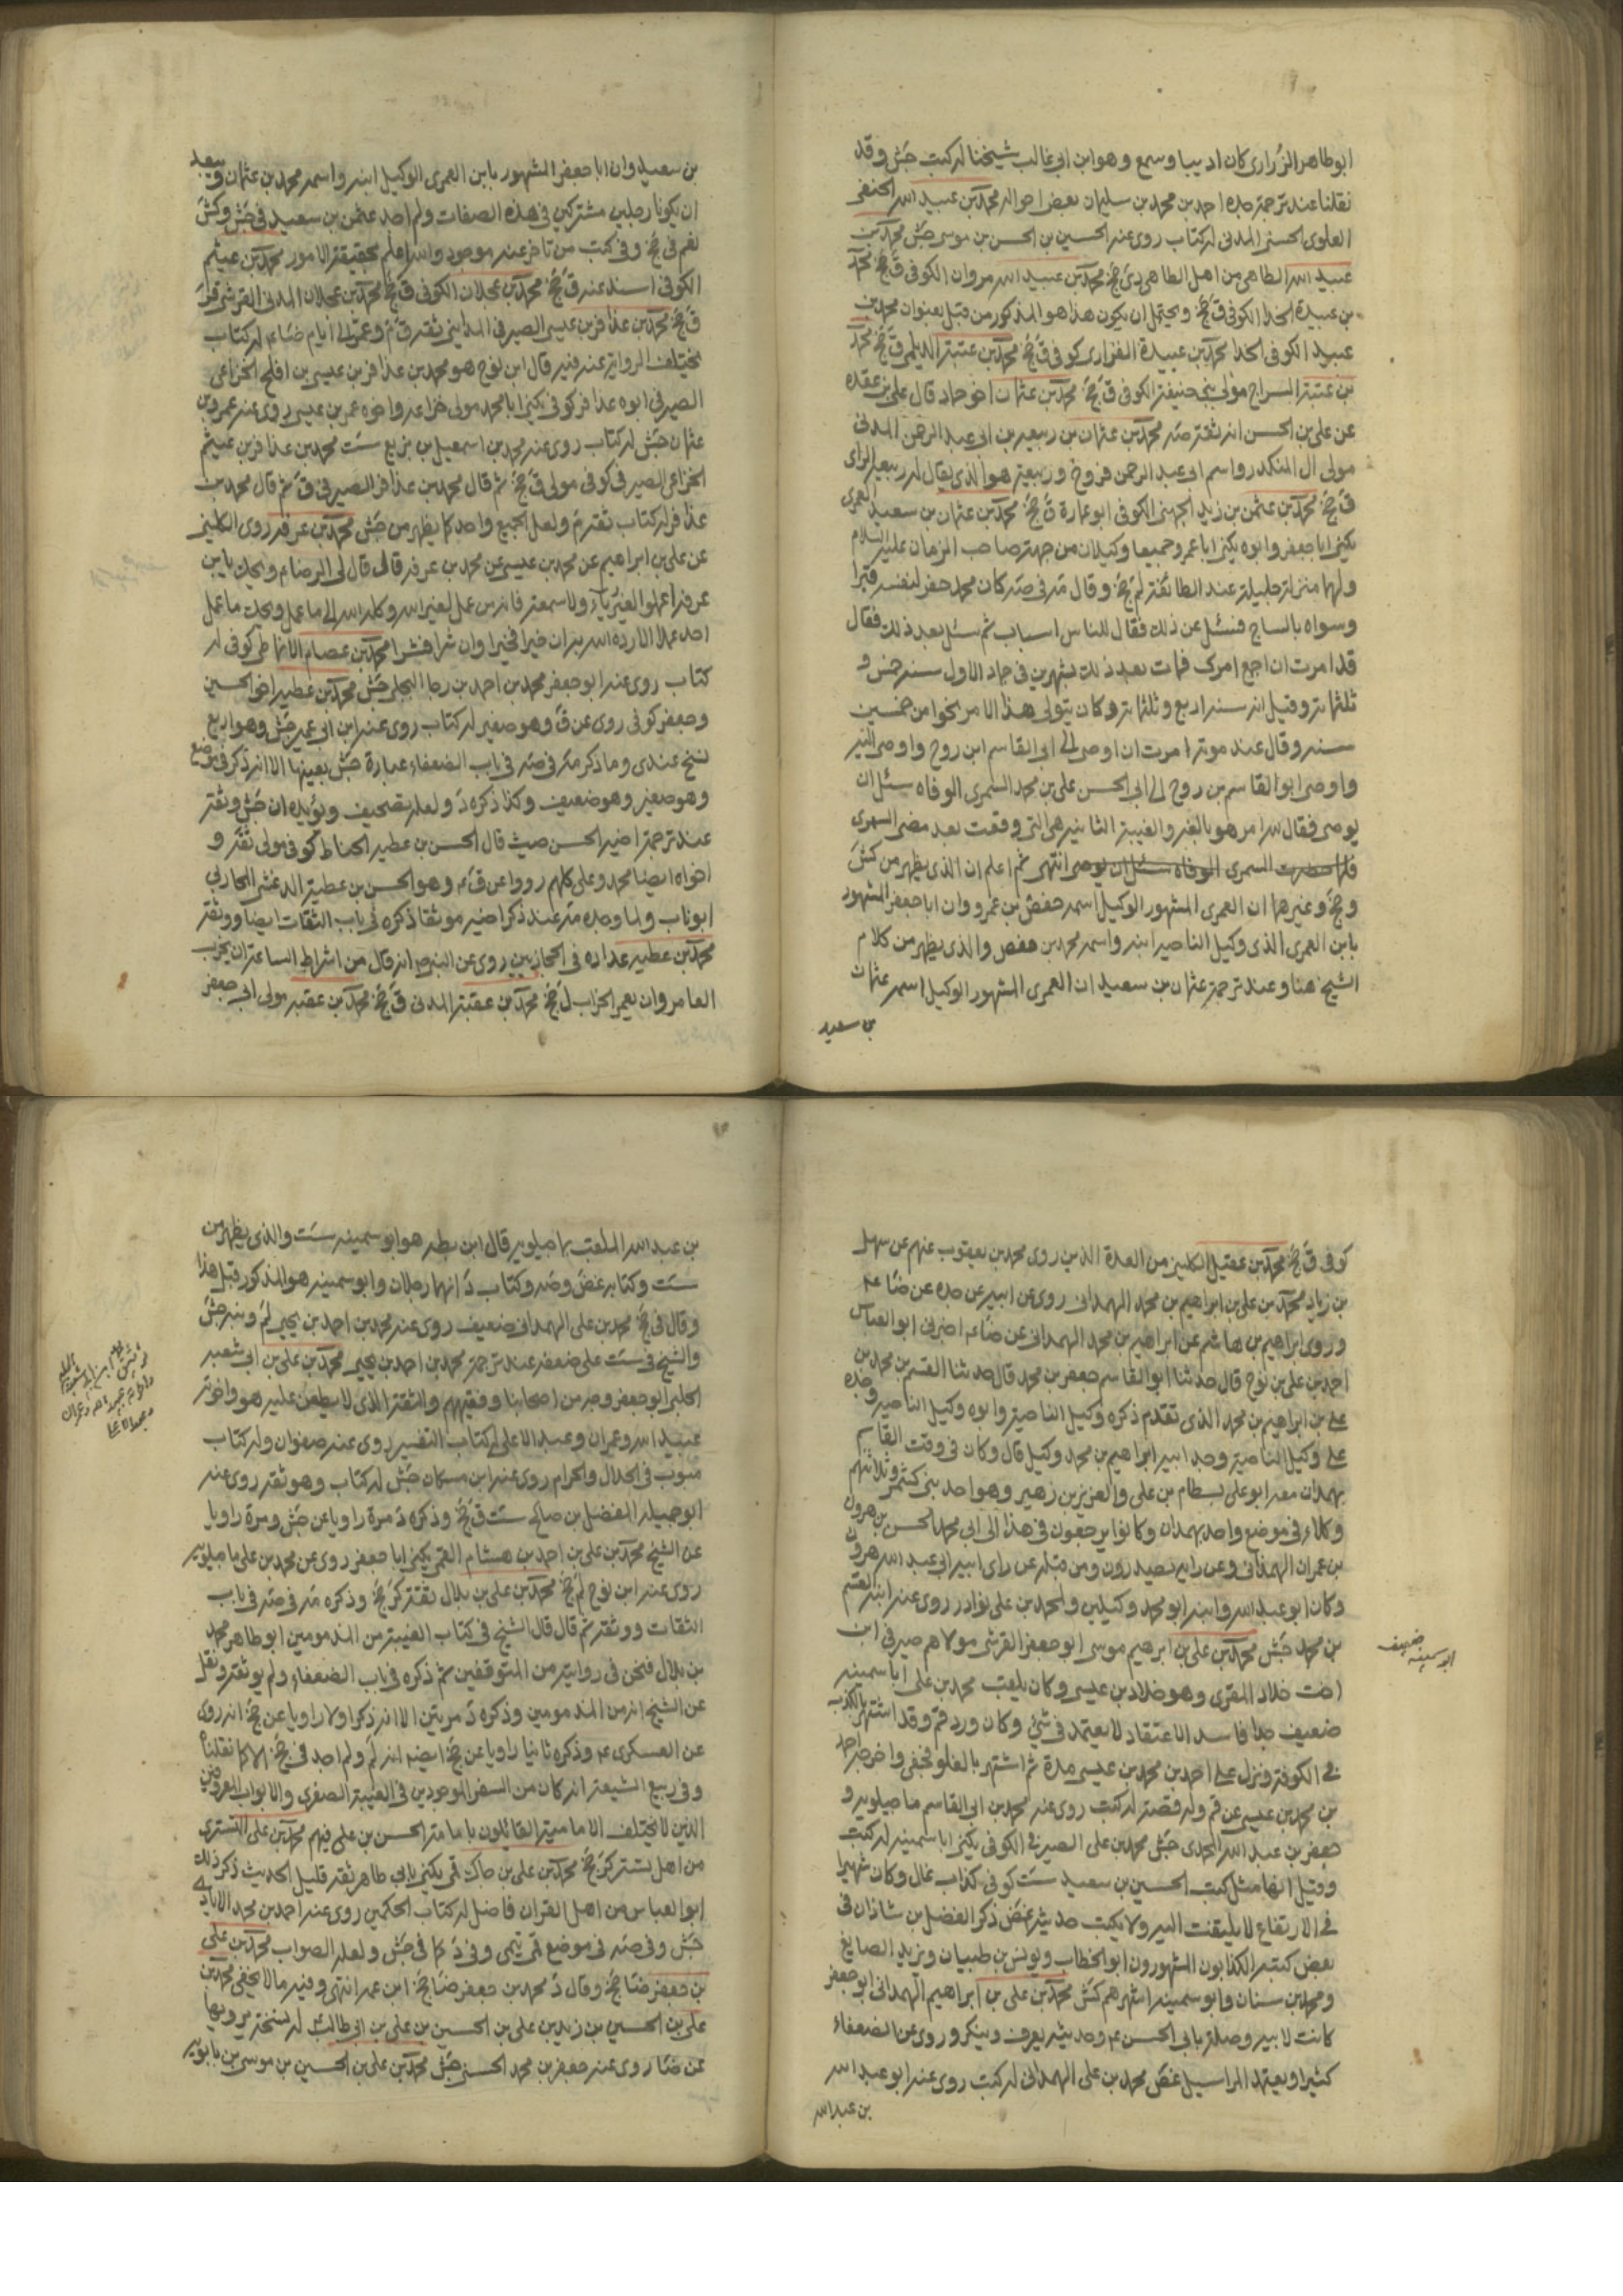 ابوطاهر الزراری کان ادیبا وسمع وهو ابن ابی غالب شیخنا له کتب جش وقد
نقلنا عند ترجمة جده احمد بن محمد بن سلیمان بعض احواله محمد بن عبید الله الحنفی
العلوی الحسنی المدنی له کتاب روی عنه الحسین بن الحسن بن موسی جش محمد بن
عبید الله الطاهی من اهل الطاهی دی جخ محمد بن عبید الله مروان الکوفی ق جخ محمد
بن عبیدة الحذا الکوفی ق جخ ویحتمل ان یکون هذا هو المذکور من قبل بعنوان محمد بن
عبید الکوفی الحذا محمد بن عبیدة الفزاری کوفی ق جخ محمد بن عتبة الدیلمی ق جخ محمد
بن عتبة السراج مولی بنی حنیفة الکوفی ق جخ محمد بن عثمان اخو حماد قال علی بن عقده
عن علی بن الحسن انه ثقة صه محمد بن عثمان بن ربیعة بن ابی عبد الرحمن المدنی
مولی ال المنکدر واسم ابی عبد الرحمن فروخ وربیعة هو الذی یقال له ربیعة الرای
ق جخ محمد بن عثمن بن زید الجهنی الکوفی ابو عمارة ق جخ محمد بن عثمان بن سعید العمری
یکنی ابا جعفر وابوه یکنی ابا عمرو جمیعا وکیلان من جهة صاحب الزمان علیه السلام
ولهما منزلة جلیلة عند الطائفة لم جخ وقال مه فی صه کان محمد حفر لنفسه قبرا
وسواه بالساج فسئل عن ذلک فقال للناس اسباب ثم سئل بعد ذلک فقال
قد امرت ان اجمع امری فمات بعد ذلک بشهرین فی جماد الاول سنة خمس و
ثلثمائة وقیل انه سنة اربع وثلثمائة وکان یتولی هذا الامر نحوا من خمسین
سنة وقال عند موته امرت ان اوصی الی ابی القاسم ابن روح واوصی الیه
واوصی ابو القاسم بن روح الی ابی الحسن علی بن محمد السمری الوفاه سئل ان
یوصی فقال لله امر هو بالغه والغیبة الثانیة هی التی وقعت بعد مضی السمری
فلما حضرت السمری الوفاه سئل ان یوصی انتهی ثم اعلم ان الذی یظهر من کش
وجخ وغیرهما ان العمری المشهور الوکیل اسمه حفص بن عمرو وان ابا جعفر المشهور
بابن العمری الذی وکیل الناحیة ابنه واسمه محمد بن حفص والذی یظهر من کلام
الشیخ هنا وعند ترجمة عثمان بن سعید ان العمری المشهور الوکیل اسمه عثمان
بن سعید
بن سعید وان ابا جعفر المشهور بابن العمری الوکیل ابنه واسمه محمد بن عثمان ویبعد
ان یکونا رجلین مشترکین فی هذه الصفات ولم اجد عثمن بن سعید فی جش وکش
نعم فی جخ وفی کتب من تاخر عنه موجود والله اعلم بحقیقة الامور محمد بن عیثم
الکوفی اسند عنه ق جخ محمد بن عجلان الکوفی ق جخ محمد بن عجلان المدنی القرشی
ق جخ محمد بن عذافر بن عیسی الصیرفی المداینی ثقة ق م وعمر الی ایام ضا ع له کتاب
یختلف الروایة عنه فیه قال ابن نوح هو محمد بن عذافر بن عیسی بن افلح الخزاعی
الصیرفی ابوه عذافر کوفی یکنی ابا محمد مولی خزاعة واخوه عمر بن عیسی روی عنه عمرو بن
عثمان جش له کتاب روی عنه محمد بن اسمعیل بن بزیع ست محمد بن عذافر بن عیثم
الخزاعی الصیرفی کوفی مولی ق جخ ثم قال محمد بن عذافر الصیرفی ق ثم قال محمد بن
عذافر له کتاب تقدم ولعل الجمیع واحد کما یظهر من جش محمد بن عرفه روی الکلینی
عن علی بن ابراهیم عن محمد بن عیسی عن محمد بن عرفه قال قال لی الرضا ع ویحک یا بن
عرفه اعملوا لغیر ریاء ولا سمعة فانه من عمل لغیر الله وکله الله الی ما عمل ویحک ما عمل
احد عملا الا رده الله به ان خیرا فخیرا وان شرا فشرا محمد بن عصام الانماطی کوفی له
کتاب روی عنه ابو جعفر محمد بن احمد بن رجا البجلی جش محمد بن عطیه اخو الحسین
وجعفر کوفی روی عن ق وهو صغیر له کتاب روی عنه ابن ابی عمیر جش وهو اربع
نسخ عندی وما ذکر مه فی صه فی باب الضعفاء عبارة جش بعینها الا انه ذکر فی موضع
وهو صغیر وهو ضعیف وکذا ذکره د ولعله تصحیف ویؤیده ان جش وثقه
عند ترجمة اخیه الحسن حیث قال الحسن بن عطیه الحناط کوفی مولی ثقة و
اخواه ایضا محمد وعلی کلهم رووا عن ق ع وهو الحسن بن عطیة الدغشی المحاربی
ابو ناب ولما وجده مه عند ذکر اخیه موثقا ذکره فی باب الثقات ایضا ووثقه
محمد بن عطیه عداده فی الحجازیین روی عن النبی ص انه قال من اشراط الساعة ان یخرب
العامر وان یعمر الخراب ل جخ محمد بن عقبة المدنی ق جخ محمد بن عقبه مولی ابی جعفر
کوفی ق جخ محمد بن عقیل الکلینی من العدة الذین روی محمد بن یعقوب عنهم عن سهل
بن زیاد محمد بن علی بن ابراهیم بن محمد الهمدانی روی عن ابیه عن جده عن ضا ع
وروی ابراهیم بن هاشم عن ابراهیم بن محمد الهمدانی عن ضا ع اخبرنی ابو العباس
احمد بن علی بن نوح قال حدثنا ابو القاسم جعفر بن محمد قال حدثنا القسم بن محمد بن
علی بن ابراهیم بن محمد الذی تقدم ذکره وکیل الناحیة وابوه وکیل الناحیة وجده
علی وکیل الناحیة وجد ابیه ابراهیم بن محمد وکیل قال وکان فی وقت القاسم
بهمدان معه ابو علی بسطام بن علی والعزیز بن زهیر وهو احد بنی کشمرد وثلاثتهم
وکلاء فی موضع واحد بهمدان وکانوا یرجعون فی هذا الی ابی محمد الحسن بن هرون
بن عمران الهمدانی وعن رایه یصدرون ومن قبله عن رای ابیه ابی عبد الله هرون
وکان ابو عبد الله وابنه ابو محمد وکیلین ولمحمد بن علی نوادر روی عنه ابنه القسم
بن محمد جش محمد بن علی بن ابرهیم موسی ابو جعفر القرشی مولاهم صیرفی ابن
اخت خلاد المقری وهو خلاد بن عیسی وکان یلقب محمد بن علی ابا سمینه
ضعیف جدا فاسد الاعتقاد لا یعتمد فی شیء وکان ورد قم وقد اشتهر بالکذب
فی الکوفة ونزل علی احمد بن محمد بن عیسی مدة ثم اشتهر بالغلو فخفی واخرجه احمد
بن محمد بن عیسی عن قم وله قصة له کتب روی عنه محمد بن ابی القاسم ماجیلویه و
جعفر بن عبد الله المحمدی جش محمد بن علی الصیرفی الکوفی یکنی ابا سمینه له کتب
وقیل انها مثل کتب الحسین بن سعید ست کوفی کذاب غال وکان شهیرا
فی الارتفاع لا یلتفت الیه ولا یکتب حدیثه غض ذکر الفضل بن شاذان فی
بعض کتبه الکذابون المشهورون ابو الخطاب ویونس بن ظبیان ویزید الصایغ
ومحمد بن سنان وابو سمینه اشهرهم کش محمد بن علی بن ابراهیم الهمدانی ابو جعفر
کانت لابیه وصلة بابی الحسن ع وحدیثه یعرف وینکر وروی عن الضعفاء
کثیرا ویعتمد المراسیل غض محمد بن علی الهمدانی له کتب روی عنه ابو عبد الله
بن عبد الله
ابو سمینه ضعیف
بن عبد الله الملقب بماجیلویه قال ابن بطه هو ابو سمینه ست والذی یظهر من
ست وکتابه غض وصه وکتاب د انهما رجلان وابو سمینه هو المذکور قبل هذا
وقال فی جخ محمد بن علی الهمدانی ضعیف روی عنه محمد بن احمد بن یحیی لم ونبه جش
والشیخ فی ست علی ضعفه عند ترجمة محمد بن احمد بن یحیی محمد بن علی بن ابی شعبه
الحلبی ابو جعفر وجه من اصحابنا وفقیههم والثقة الذی لا یطعن علیه هو واخوته
عبید الله وعمران وعبد الاعلی له کتاب التفسیر روی عنه صفوان وله کتاب
مبوب فی الحلال والحرام روی عنه ابن مسکان جش له کتاب وهو ثقة روی عنه
ابو جمیله المفضل بن صالح ست ق جخ وذکره د مرة راویا عن جش ومرة راویا
عن الشیخ محمد بن علی بن احمد بن هشام القمی یکنی ابا جعفر روی عن محمد بن علی ماجیلویه
روی عنه ابن نوح لم جخ محمد بن علی بن بلال ثقة کر جخ وذکره مه فی صه فی باب
الثقات ووثقه ثم قال قال الشیخ فی کتاب الغیبة من المذمومین ابو طاهر محمد
بن بلال فنحن فی روایته من المتوقفین ثم ذکره فی باب الضعفاء ولم یوثقه ونقل
عن الشیخ انه من المذمومین وذکره د مرتین الا انه ذکر اولا راویا عن جخ انه روی
عن العسکری ع وذکره ثانیا راویا عن جخ ایضه انه لم ولم اجد فی جخ الا کما نقلناه
وفی ربیع الشیعة انه کان من السفراء الموجودین فی الغیبة الصغری والابواب المعروفین
الذین لا یختلف الامامیة القائلون بامامة الحسن بن علی فیهم محمد بن علی التستری
من اهل تستر کر جخ محمد بن علی بن جاک قمی یکنی بابی طاهر ثقة قلیل الحدیث ذکر ذلک
ابو العباس من اهل القران فاضل له کتاب الحکمین روی عنه احمد بن محمد الایادی
جش وفی صه فی موضع قمی تیمی وفی د کما فی جش ولعله الصواب محمد بن علی
بن جعفر ضا جخ وقال د محمد بن جعفر ضا جخ ابن عمه انتهی وفیه ما لا یخفی محمد بن
علی بن الحسین بن زید بن علی بن الحسین بن علی بن ابی طالب له نسخة یرویها
عن ضا روی عنه جعفر بن محمد الحسنی جش محمد بن علی بن الحسین بن موسی بن بابویه